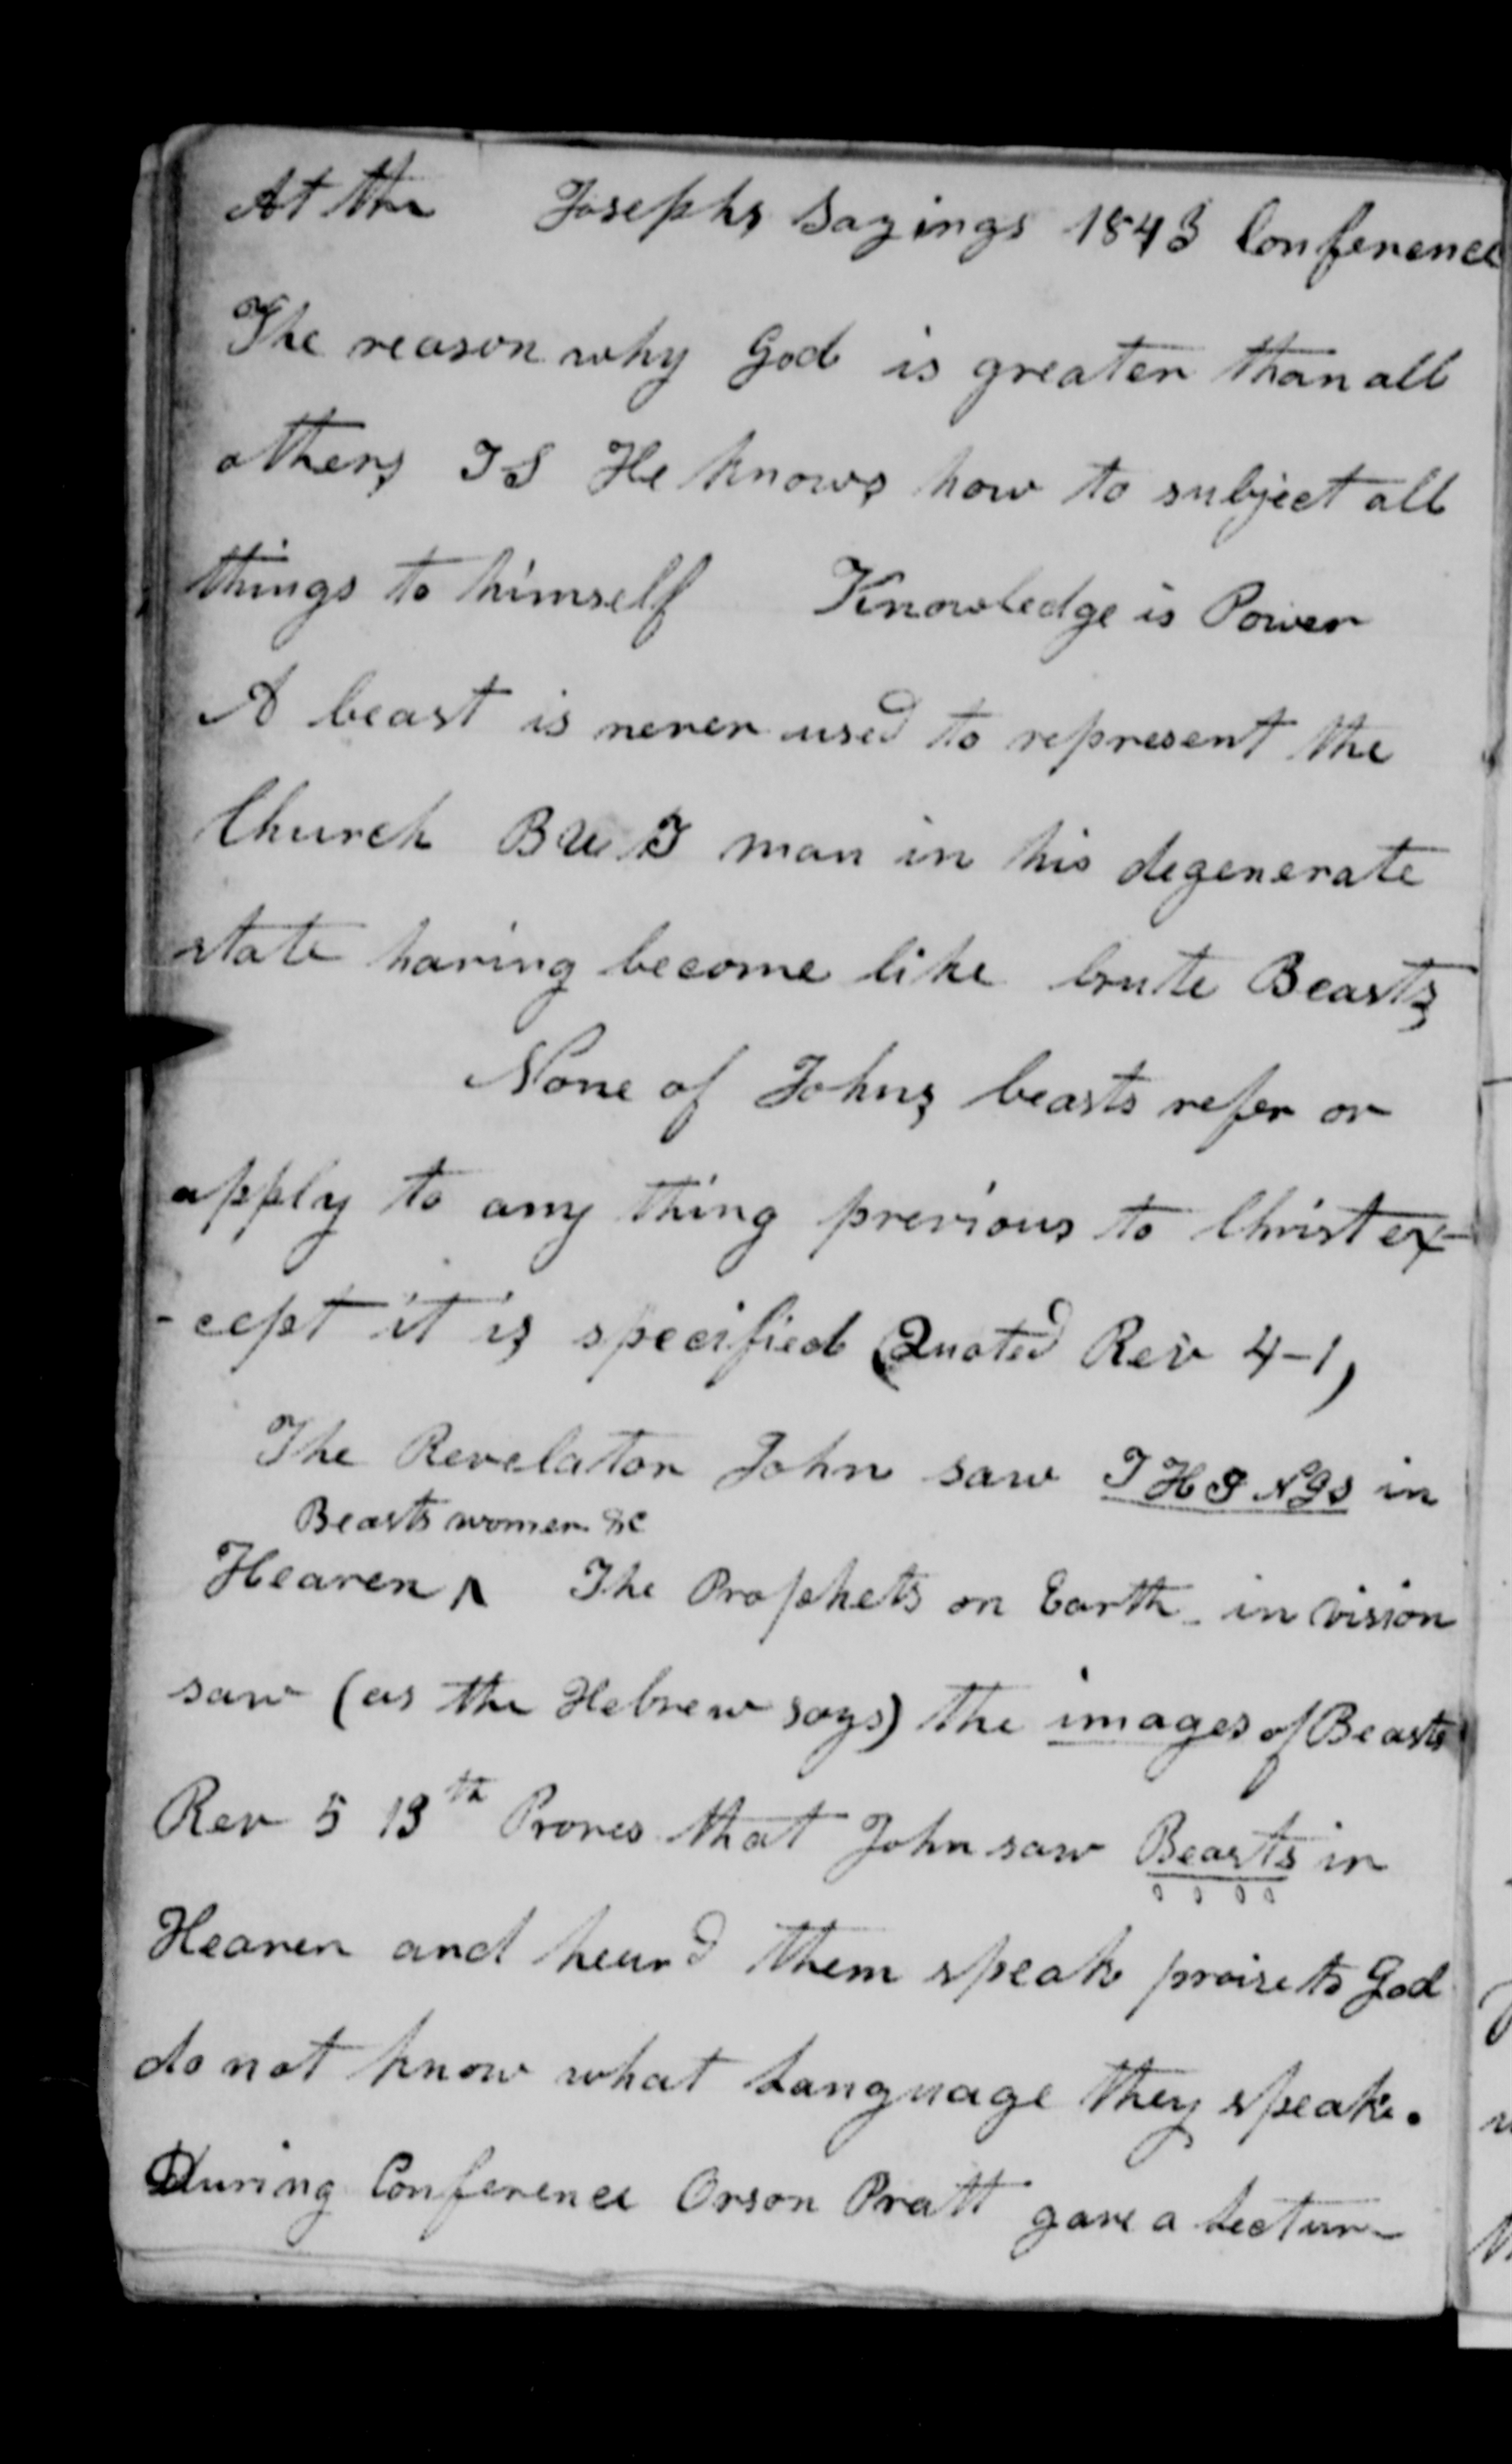 At the Josephs Sayings 1843 Conference
The reason why God is greater than all
others IS He knows how to subject all
things to himself Knowledge is Power
A beast is never used to represent the
Church BUT man in his degenerate
state having become like brute Beasts
None of Johns beasts refer or
apply to any thing previous to Christ ex-
-cept it is specified (Quoted Rev 4-1)
The Revelator John saw THINGS in
Beasts women &c
Heaven ʌ The Prophets on Earth in vision
saw (as the Hebrew says) the images of Beasts
Rev 5 13th Proves that John saw Beasts in
Heaven and heard them speak praise to God
do not know what Language they speak.
During Conference Orson Pratt gave a Lecture